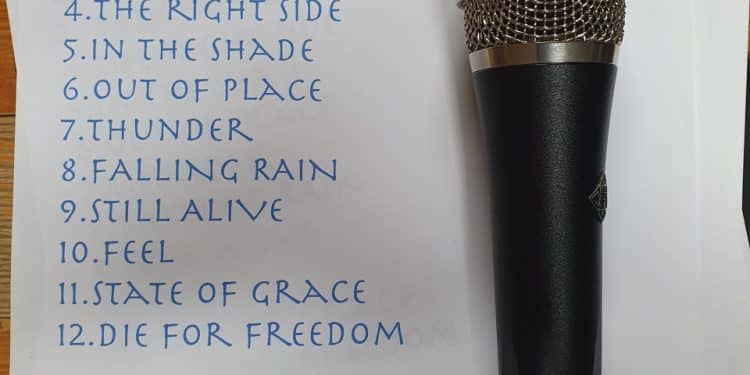 4.THE RIGHT SIDE
5.IN THE SHADE
6.OUT OF PLACE
7.THUNDER
8.FALLING RAIN
9.STILL ALIVE
10.FEEL
11.STATE OF GRACE
12.DIE FOR FREEDOM